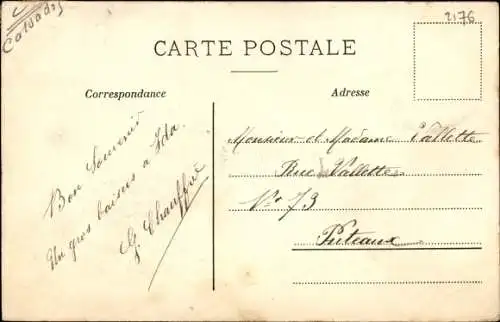 Calvados
2176
CARTE POSTALE
Correspondance
Adresse
Bon Souvenir
Un gros baiser à Ida.
G. Chauffin
Monsieur et Madame Vallette
Rue Vallette
No 73
Puteaux